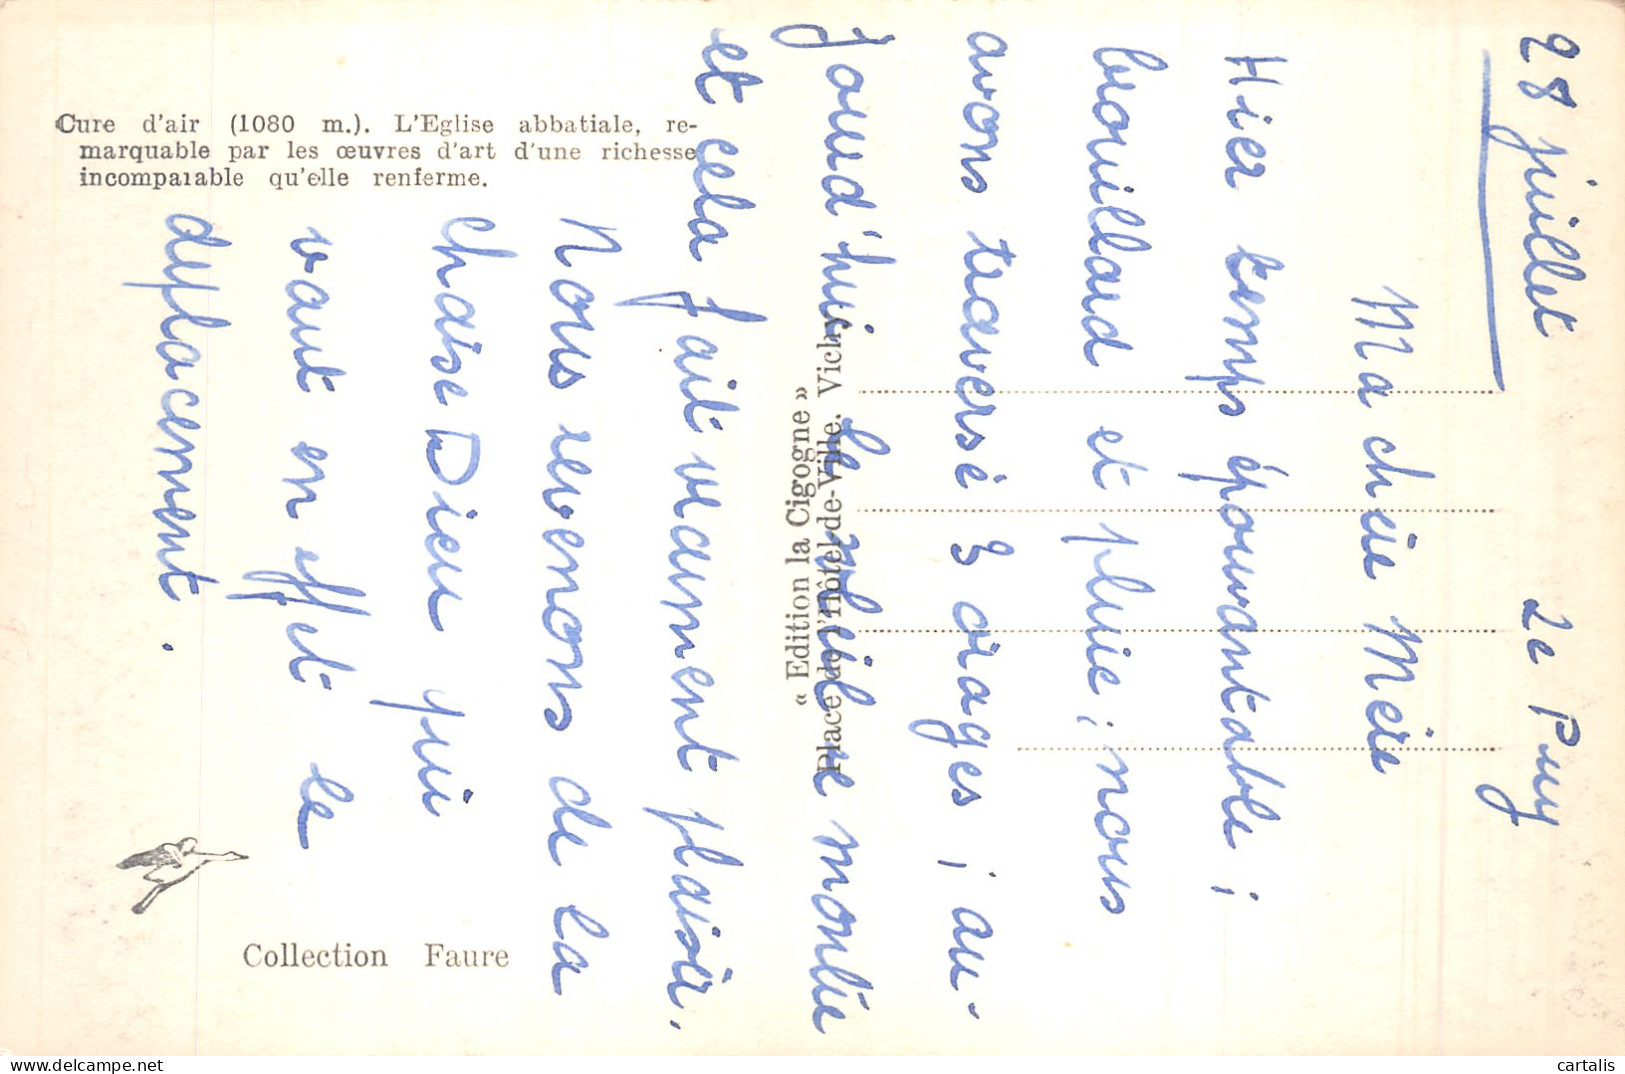 Cure d'air (1080 m.). L'Eglise abbatiale, re-
marquable par les œuvres d'art d'une richesse
incomparable qu'elle renferme.
« Edition la Cigogne »
Place de l'Hôtel-de-Ville. Vichy
Collection Faure
28 juillet Le Puy
Ma chère Mère
Hier temps épouvantable ;
brouillard et pluie ; nous
avons traversé 3 orages ; au-
jourd'hui le soleil se montre
et cela fait vraiment plaisir.
Nous revenons de la
Chaise Dieu qui
vaut en effet le
déplacement.
cartalis